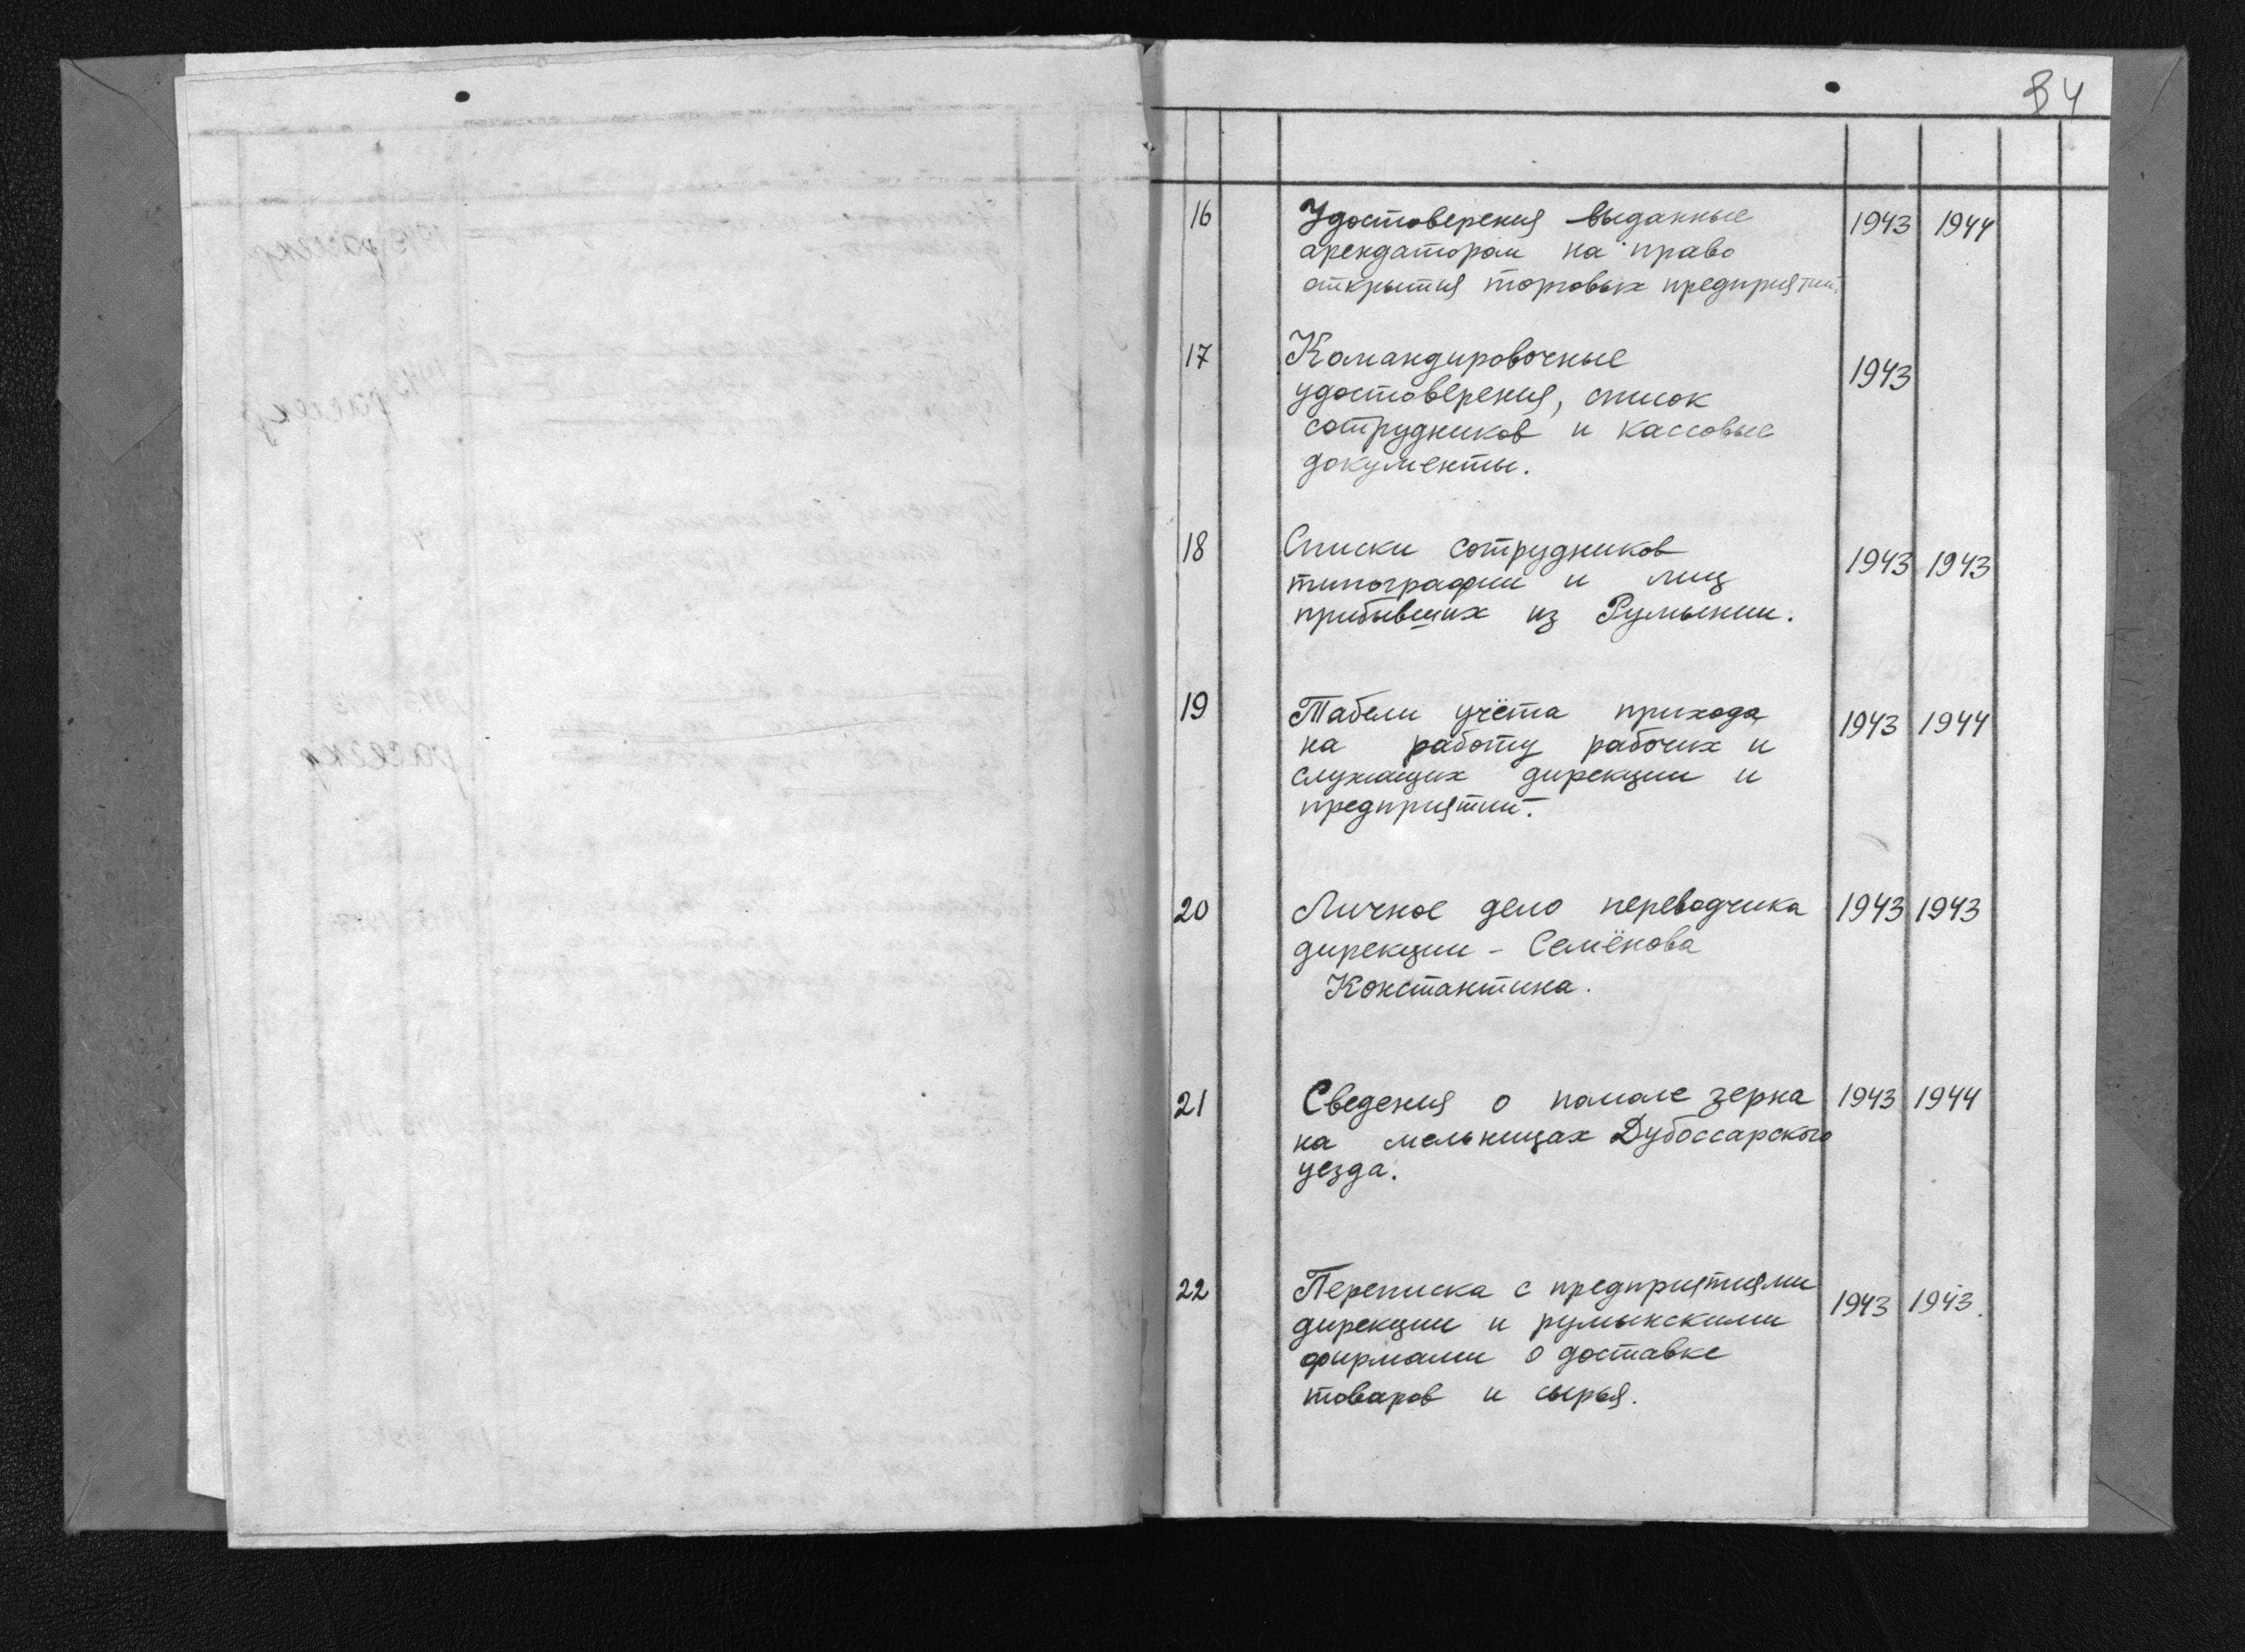 84
16 Удостоверения выданные 1943 1944
арендаторам на право
открытия торговых предприятий.
17 Командировочные 1943
удостоверения, список
сотрудников и кассовые
документы.
18 Списки сотрудников 1943 1943
типографии и лиц
прибывших из Румынии.
19 Табели учёта прихода 1943 1944
на работу рабочих и
служащих дирекции и
предприятий.
20 Личное дело переводчика 1943 1943
дирекции - Семёнова
Константина.
21 Сведения о помоле зерна 1943 1944
на мельницах Дубоссарского
уезда.
22 Переписка с предприятиями 1943 1943.
дирекции и румынскими
фирмами о доставке
товаров и сырья.